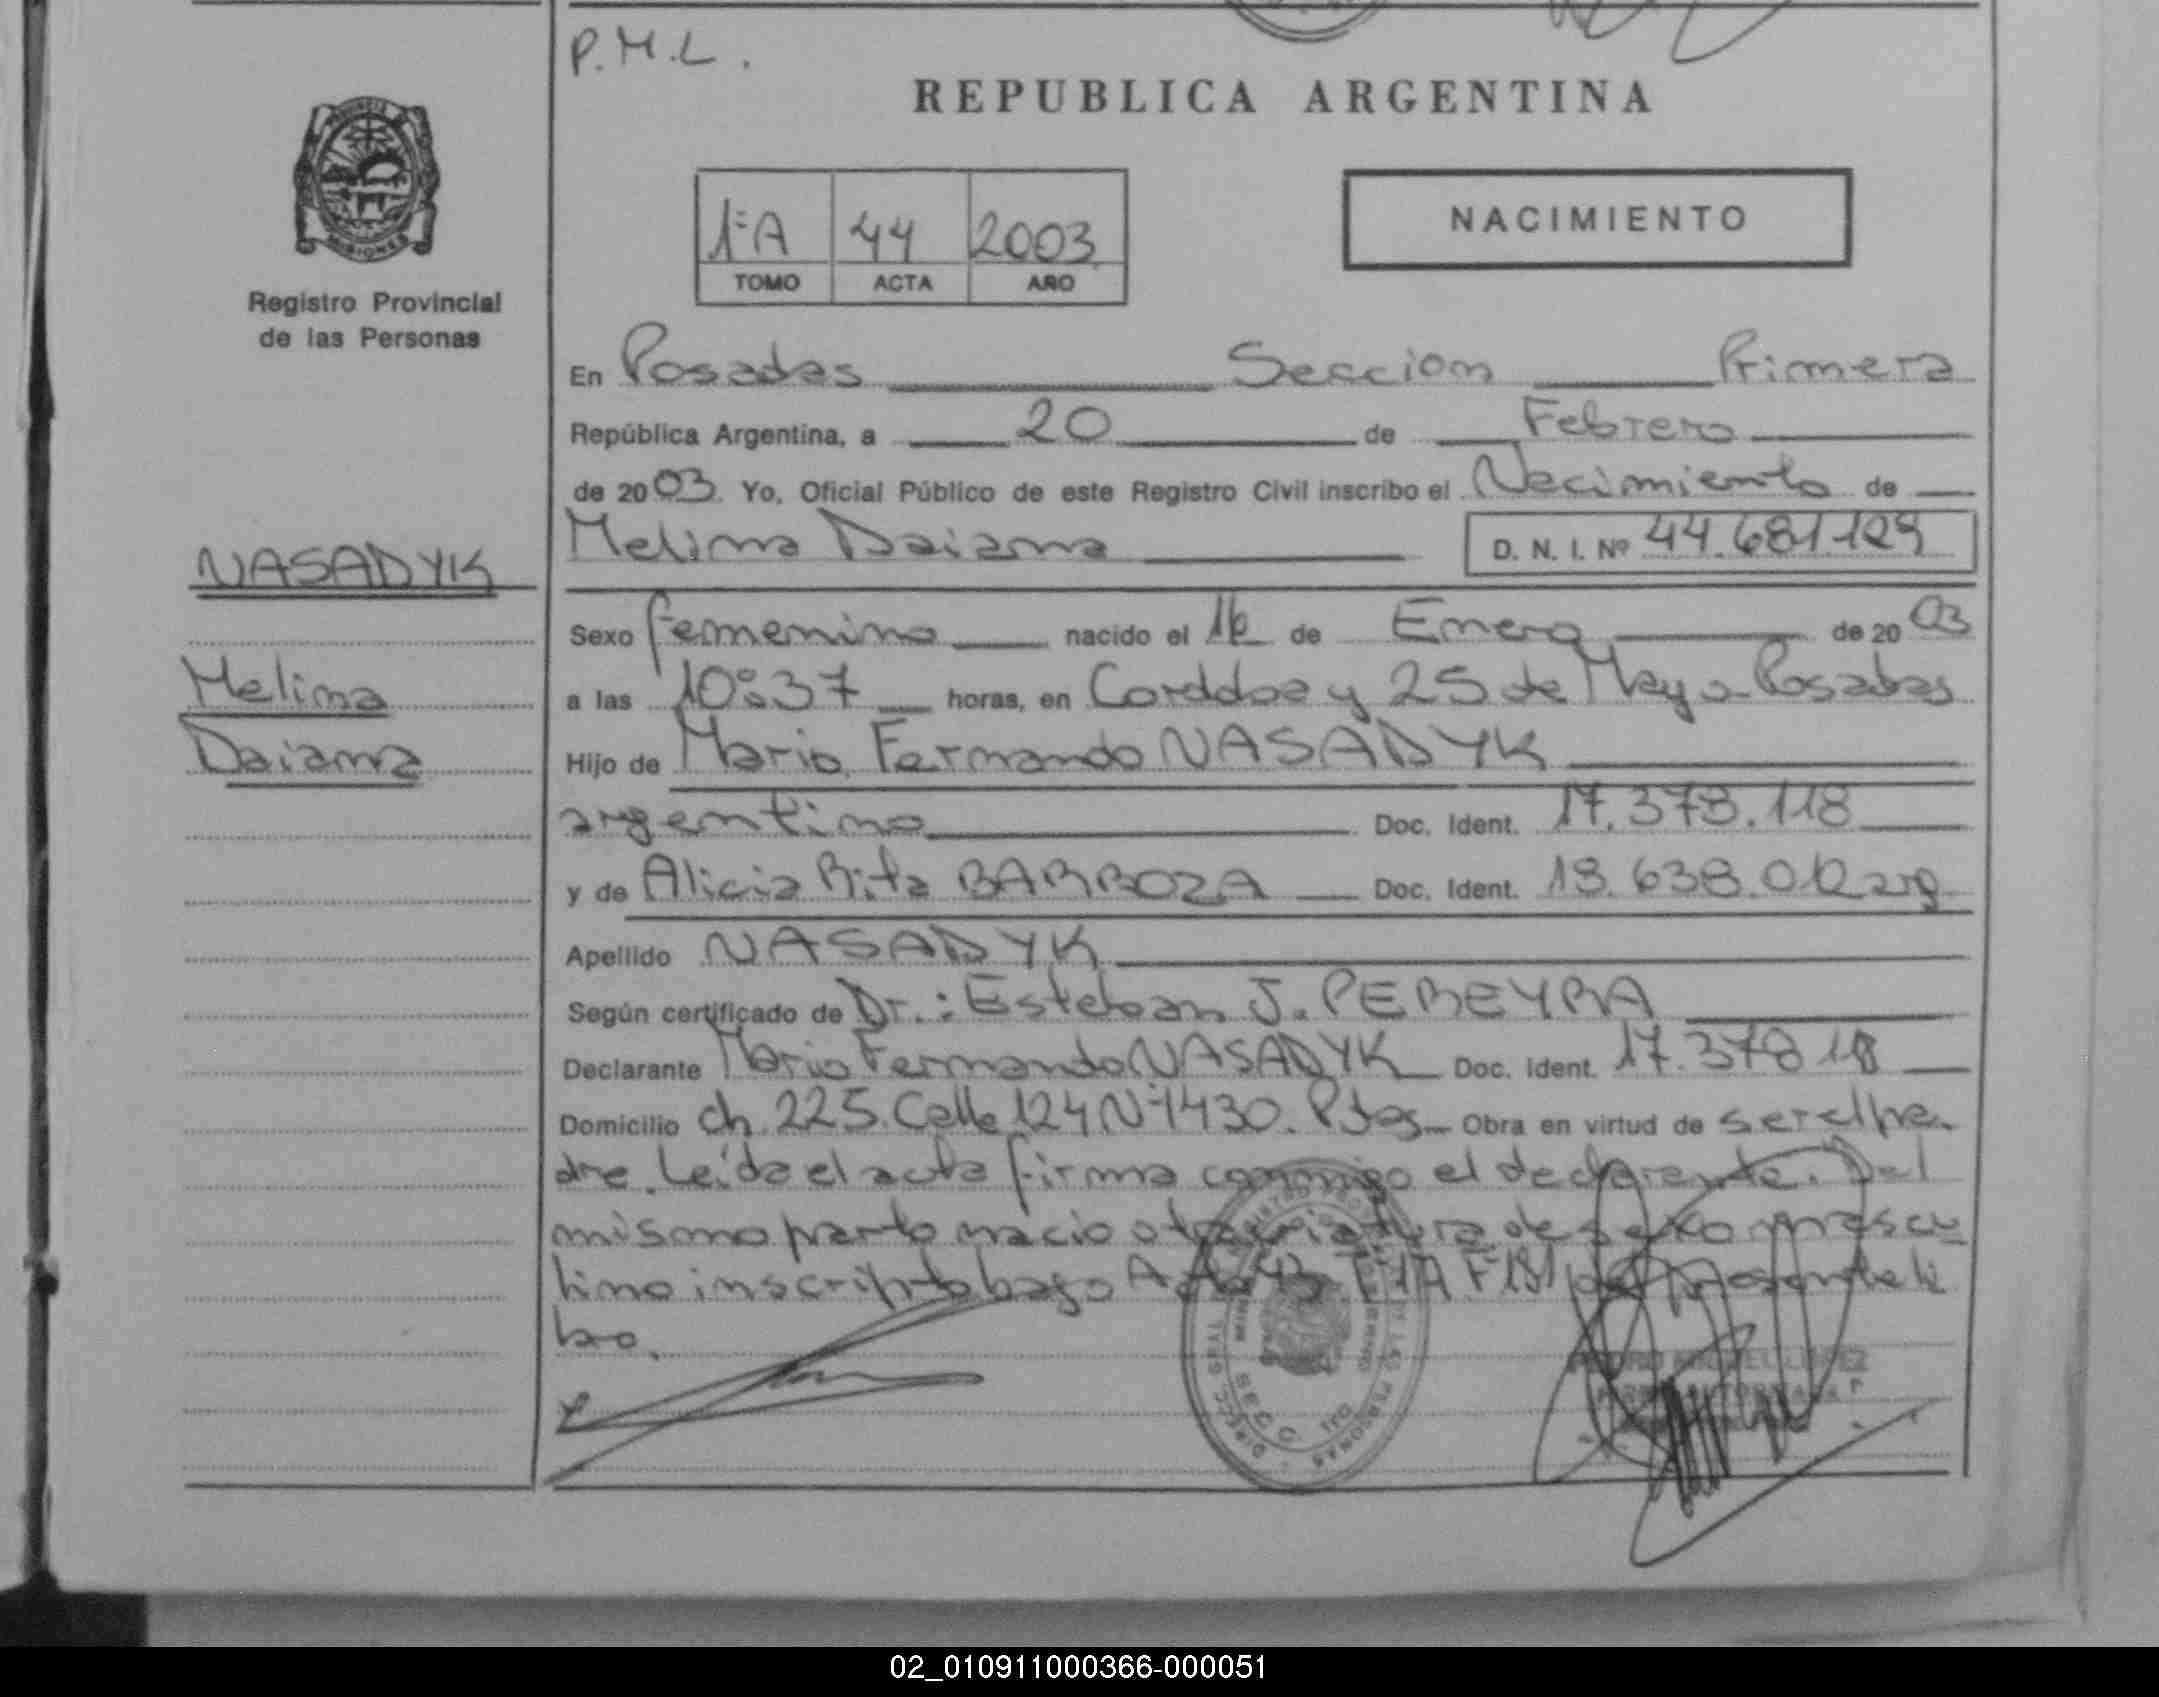 P.M.L.
REPUBLICA ARGENTINA
PROVINCIA
MISIONES
1ºA 44 2003
TOMO ACTA AÑO
NACIMIENTO
Registro Provincial
de las Personas
En Posadas Seccion Primera
República Argentina, a 20 de Febrero
de 2003. Yo, Oficial Público de este Registro Civil inscribo el Nacimiento de
NASADYK
Melina Daiana D. N. I. Nº 44.681.129
Sexo femenino nacido el 16 de Enero de 2003
Melina
a las 10:37 horas, en Cordoba y 25 de Mayo Posadas
Daiana
Hijo de Mario Fernando NASADYK
argentino Doc. Ident. 17.378.118
y de Alicia Rita BARBOZA Doc. Ident. 18.638.012 arg
Apellido NASADYK
Según certificado de Dr.: Esteban J. PEREYRA
Declarante Mario Fernando NASADYK Doc. Ident. 17.378 118
Domicilio ch. 225. Calle 124 Nº 1430. Pdas. Obra en virtud de ser el pa-
dre. Leida el acta firma conmigo el declarante. Del
mismo parto nacio otra criatura de sexo mascu
lino inscripto bajo Acta 43 Tº 1ºA
bro.
SECC. 1ro
02_010911000366-000051